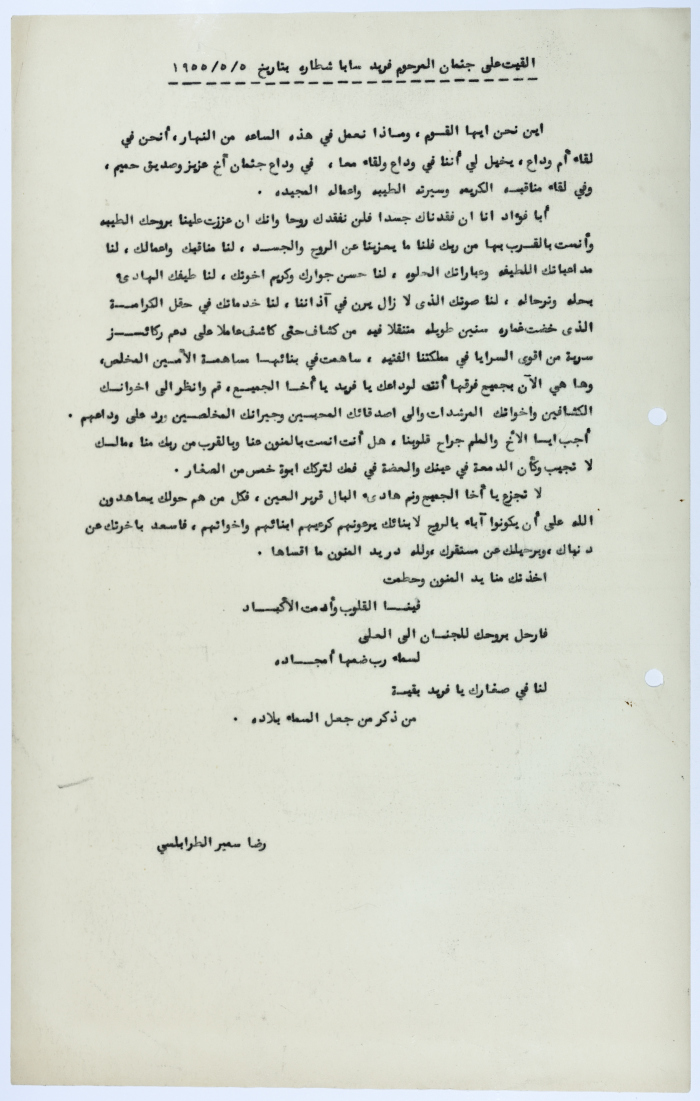 القيت على جثمان المرحوم فريد سابا شطاره بتاريخ ١٩٥٥/٥/٥
اين نحن ايها القوم ، وماذا نعمل في هذه الساعه من النهار ، أنحن في
لقاء أم وداع ، يخيل لي أننا في وداع ولقاء معا ، في وداع جثمان أخ عزيز وصديق حميم ،
وفي لقاء مناقبه الكريمه وسيرته الطيبه واعماله المجيده .
أبا فؤاد انا ان فقدناك جسدا فلن نفقدك روحا وانك ان عززت علينا بروحك الطيبه
وأنست بالقرب بها من ربك فلنا ما يعزينا عن الروح والجسد ، لنا مناقبك واعمالك ، لنا
مداعباتك اللطيفه وعباراتك الحلوه ، لنا حسن جوارك وكريم اخوتك ، لنا طيفك الهادىء
بحله وترحاله ، لنا صوتك الذى لا زال يرن في آذاننا ، لنا خدماتك في حقل الكرامــة
الذى خضت غماره سنين طويله متنقلا فيه من كشاف حتى كاشف عاملا على دعم ركائــــز
سرية من اقوى السرايا في مملكتنا الفتيه ، ساهمت في بنائهـا مساهمة الأمين المخلص،
وها هي الآن بجميع فرقها أتت لوداعك يا فريد يا أخـا الجميــع ، قم وانظر الى اخوانــك
الكشافين واخواتك المرشدات والى اصدقائك المحبين وجيرانك المخلصين ورد على وداعهم .
أجب ايـا الأخ والعلم جراح قلوبنا ، هل أنت انست بالمنون عنا وبالقرب من ربك منا ، مالــك
لا تجيب وكأن الدمعة في عينك والحضة في فمك لتركك ابوة خمس من الصغار .
لا تجزع يا أخا الجميع ونم هادىء البال قرير العين ، فكل من هم حولك يعاهدون
الله على أن يكونوا آباء بالروح لابنائك يرعونهم كرعيهم ابنائهم واخواتهم ، فاسعد باخرتك عن
دنياك ، وبرحيلك عن مستقرك ، ولله در يد المنون ما اقساها .
اخذتك منا يد المنون وحطمت
فينــا القلوب وأدمت الأكبــاد
فارحل بروحك للجنــان الى العلى
لسماء رب ضمها أمجــاده
لنا في صغارك يا فريد بقيــة
من ذكر من جعل السماء بلاده .
رضا سمير الطرابلسي